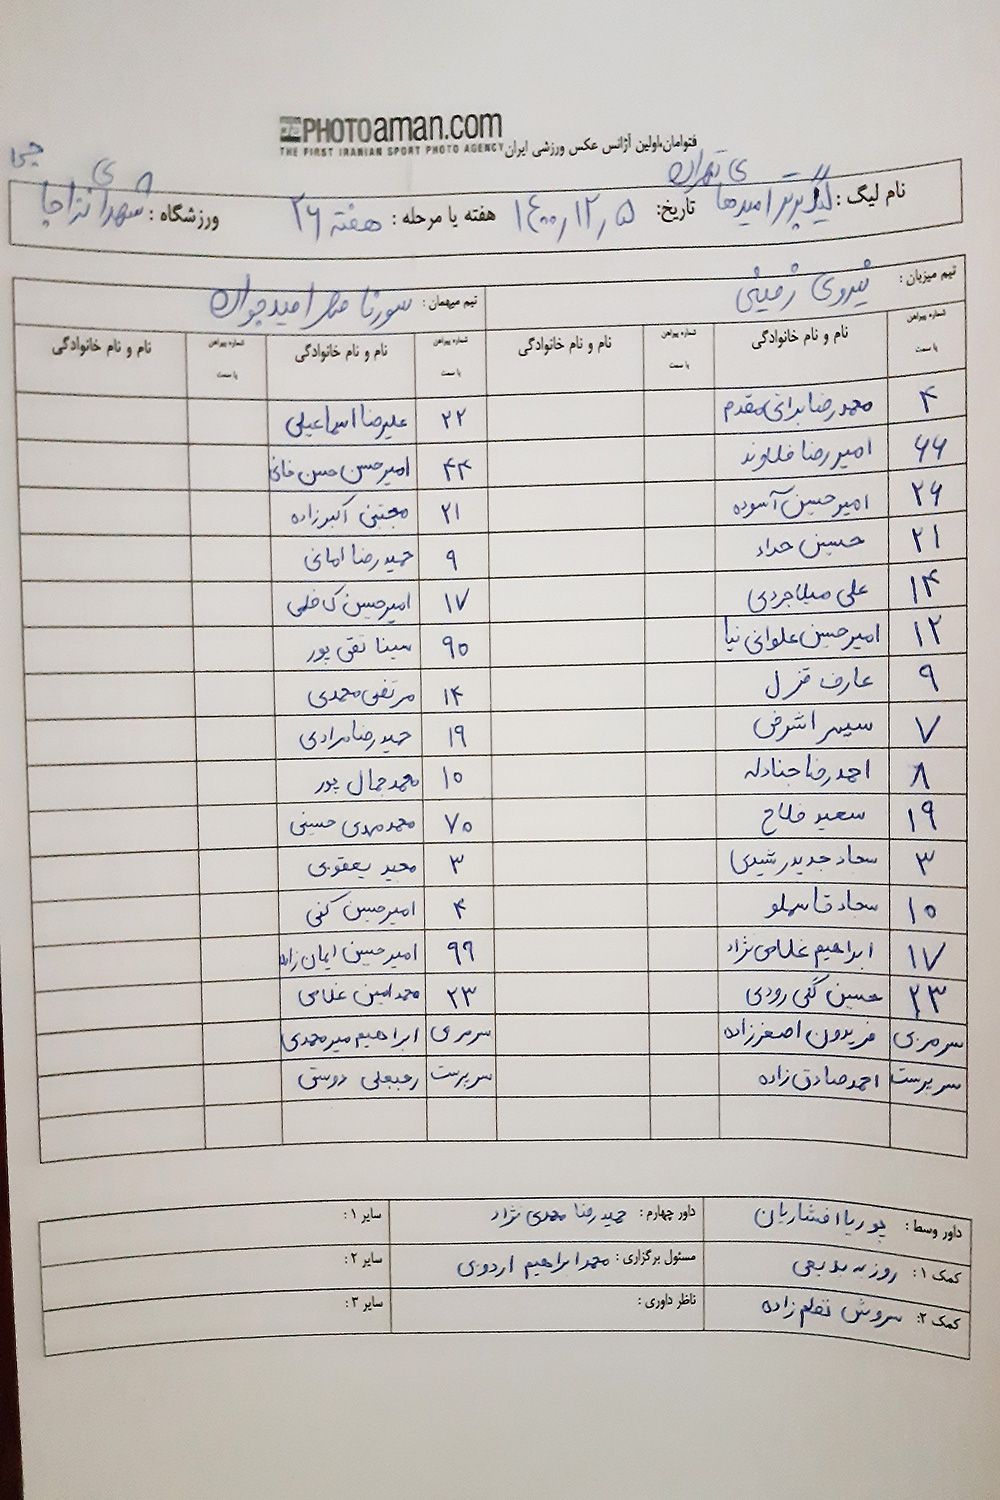 PHOTOaman.com
THE FIRST IRANIAN SPORT PHOTO AGENCY
فتوامان،اولین آژانس عکس ورزشی ایران
ی تهران
نام لیگ : لیگ برتر امیدها تاریخ: ۱۴۰۰٫۱۲٫۵ هفته یا مرحله : هفته ۲۶ ورزشگاه : شهدای نزاجا
تیم میزبان : نیروی زمینی تیم میهمان : سورنا امید جوان
شماره پیراهن یا سمت نام و نام خانوادگی شماره پیراهن یا سمت نام و نام خانوادگی شماره پیراهن یا سمت نام و نام خانوادگی شماره پیراهن یا سمت نام و نام خانوادگی
۴ محمد رضا مقدم ۲۲ علیرضا اسماعیلی
۶۶ امیر رضا ۴۴ امیرحسن حسن خانی
۲۶ امیر حسین آسوده ۲۱ مجتبی اکبرزاده
۲۱ حسین حداد ۹ حمید رضا امانی
۱۴ علی میلاجردی ۱۷ امیرحسین کاظمی
۱۲ امیر حسین علوانی نیا ۹۰ سینا تقی پور
۹ عارف قزل ۱۴ مرتضی محمدی
۷ سپهر اشرفی ۱۹ حمید رضا مرادی
۸ احمد رضا جنادله ۱۰ محمد جمال پور
۱۹ سعید فلاح ۷۰ محمد مهدی حسینی
۳ سجاد جدید رشیدی ۳ مجید یعقوبی
۱۰ سجاد قاسملو ۴ امیر حسین کنی
۱۷ ابراهیم غلامی نژاد ۹۹ امیر حسین ایمان زاده
۲۳ حسین گلی رودی ۲۳ محمد امین غلامی
سرمربی فریدون اصغرزاده سرمربی ابراهیم میرمحمدی
سرپرست احمد صادق زاده سرپرست رجبعلی دوستی
داور وسط : پوریا افشاریان داور چهارم : حمید رضا مهدی نژاد سایر ۱ :
کمک ۱ : روزبه بدیعی مسئول برگزاری : محمد ابراهیم اردوبی سایر ۲ :
کمک ۲: سروش زاده ناظر داوری : سایر ۳ :